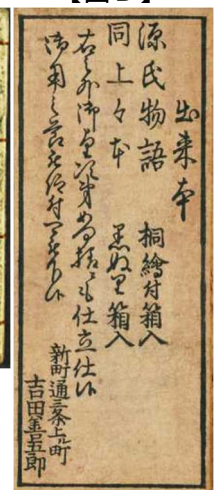 出来本
源氏物語　桐繪付箱入
同上々本　黒ぬり箱入
右之外御望次第如何様ニも仕立仕候
御用之節被仰付可被下候
新町通三条上ル町
吉田善五郎